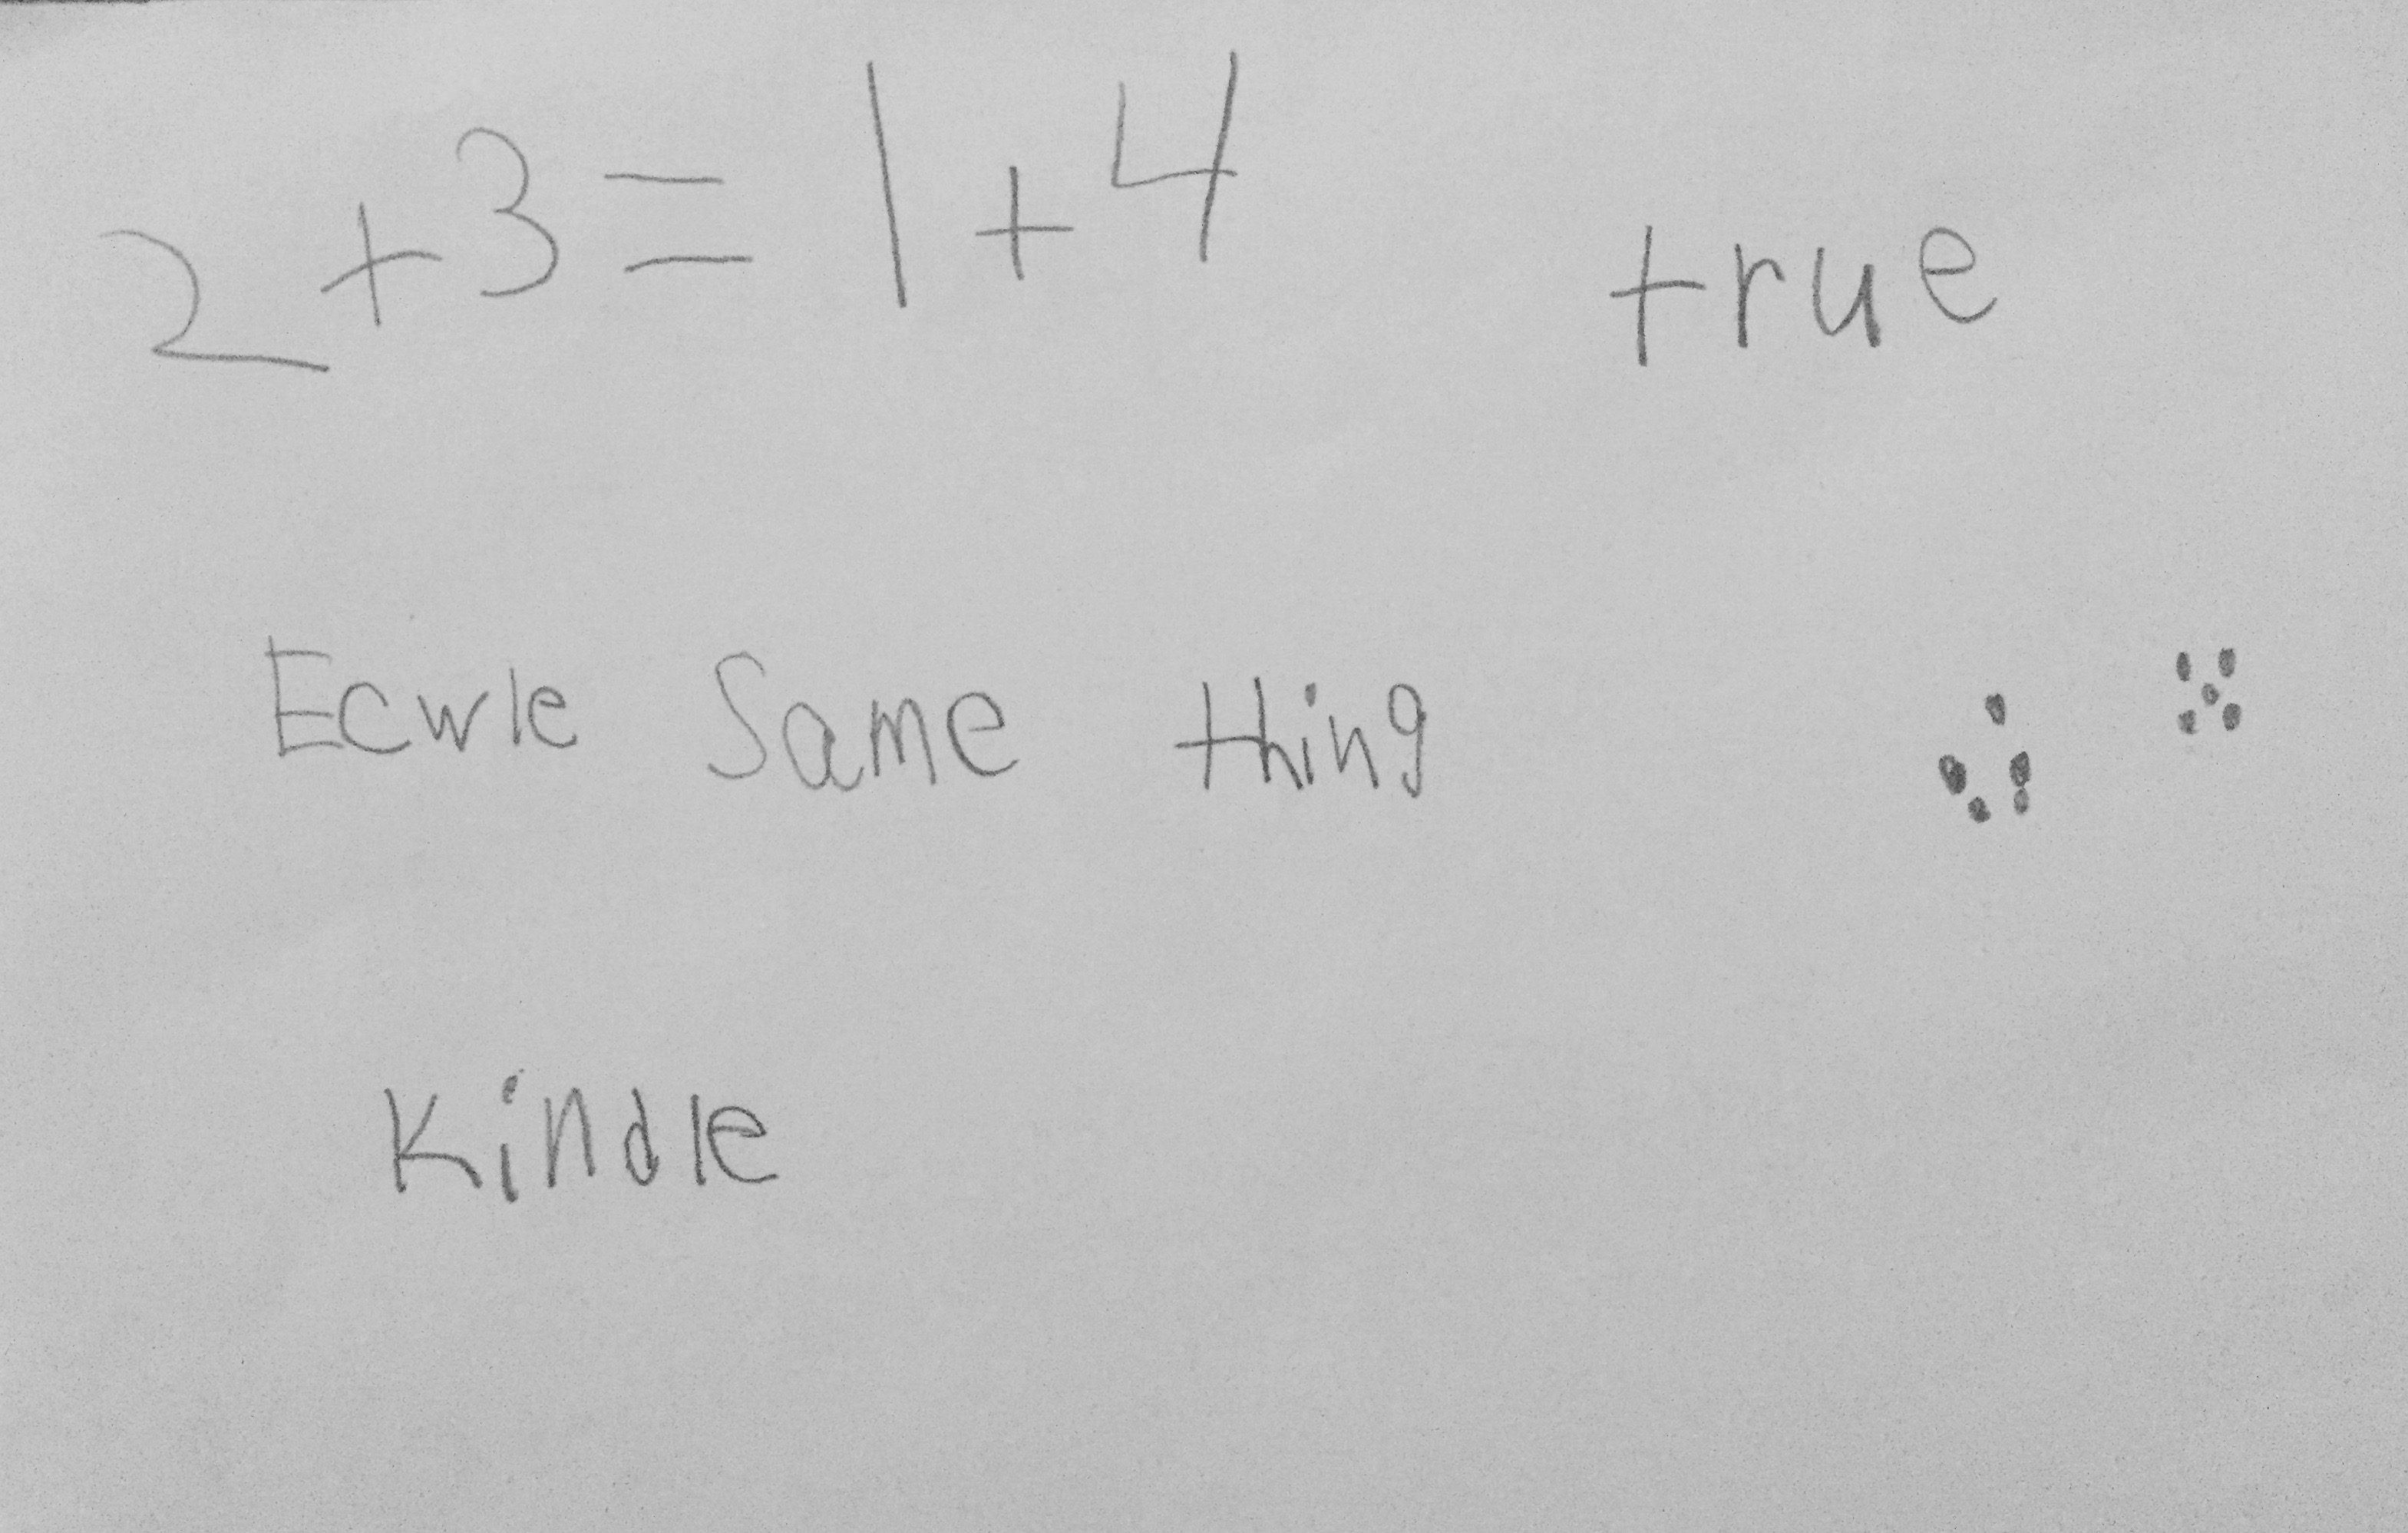 2+3=1+4 true
Ecwle Same thing
Kindle